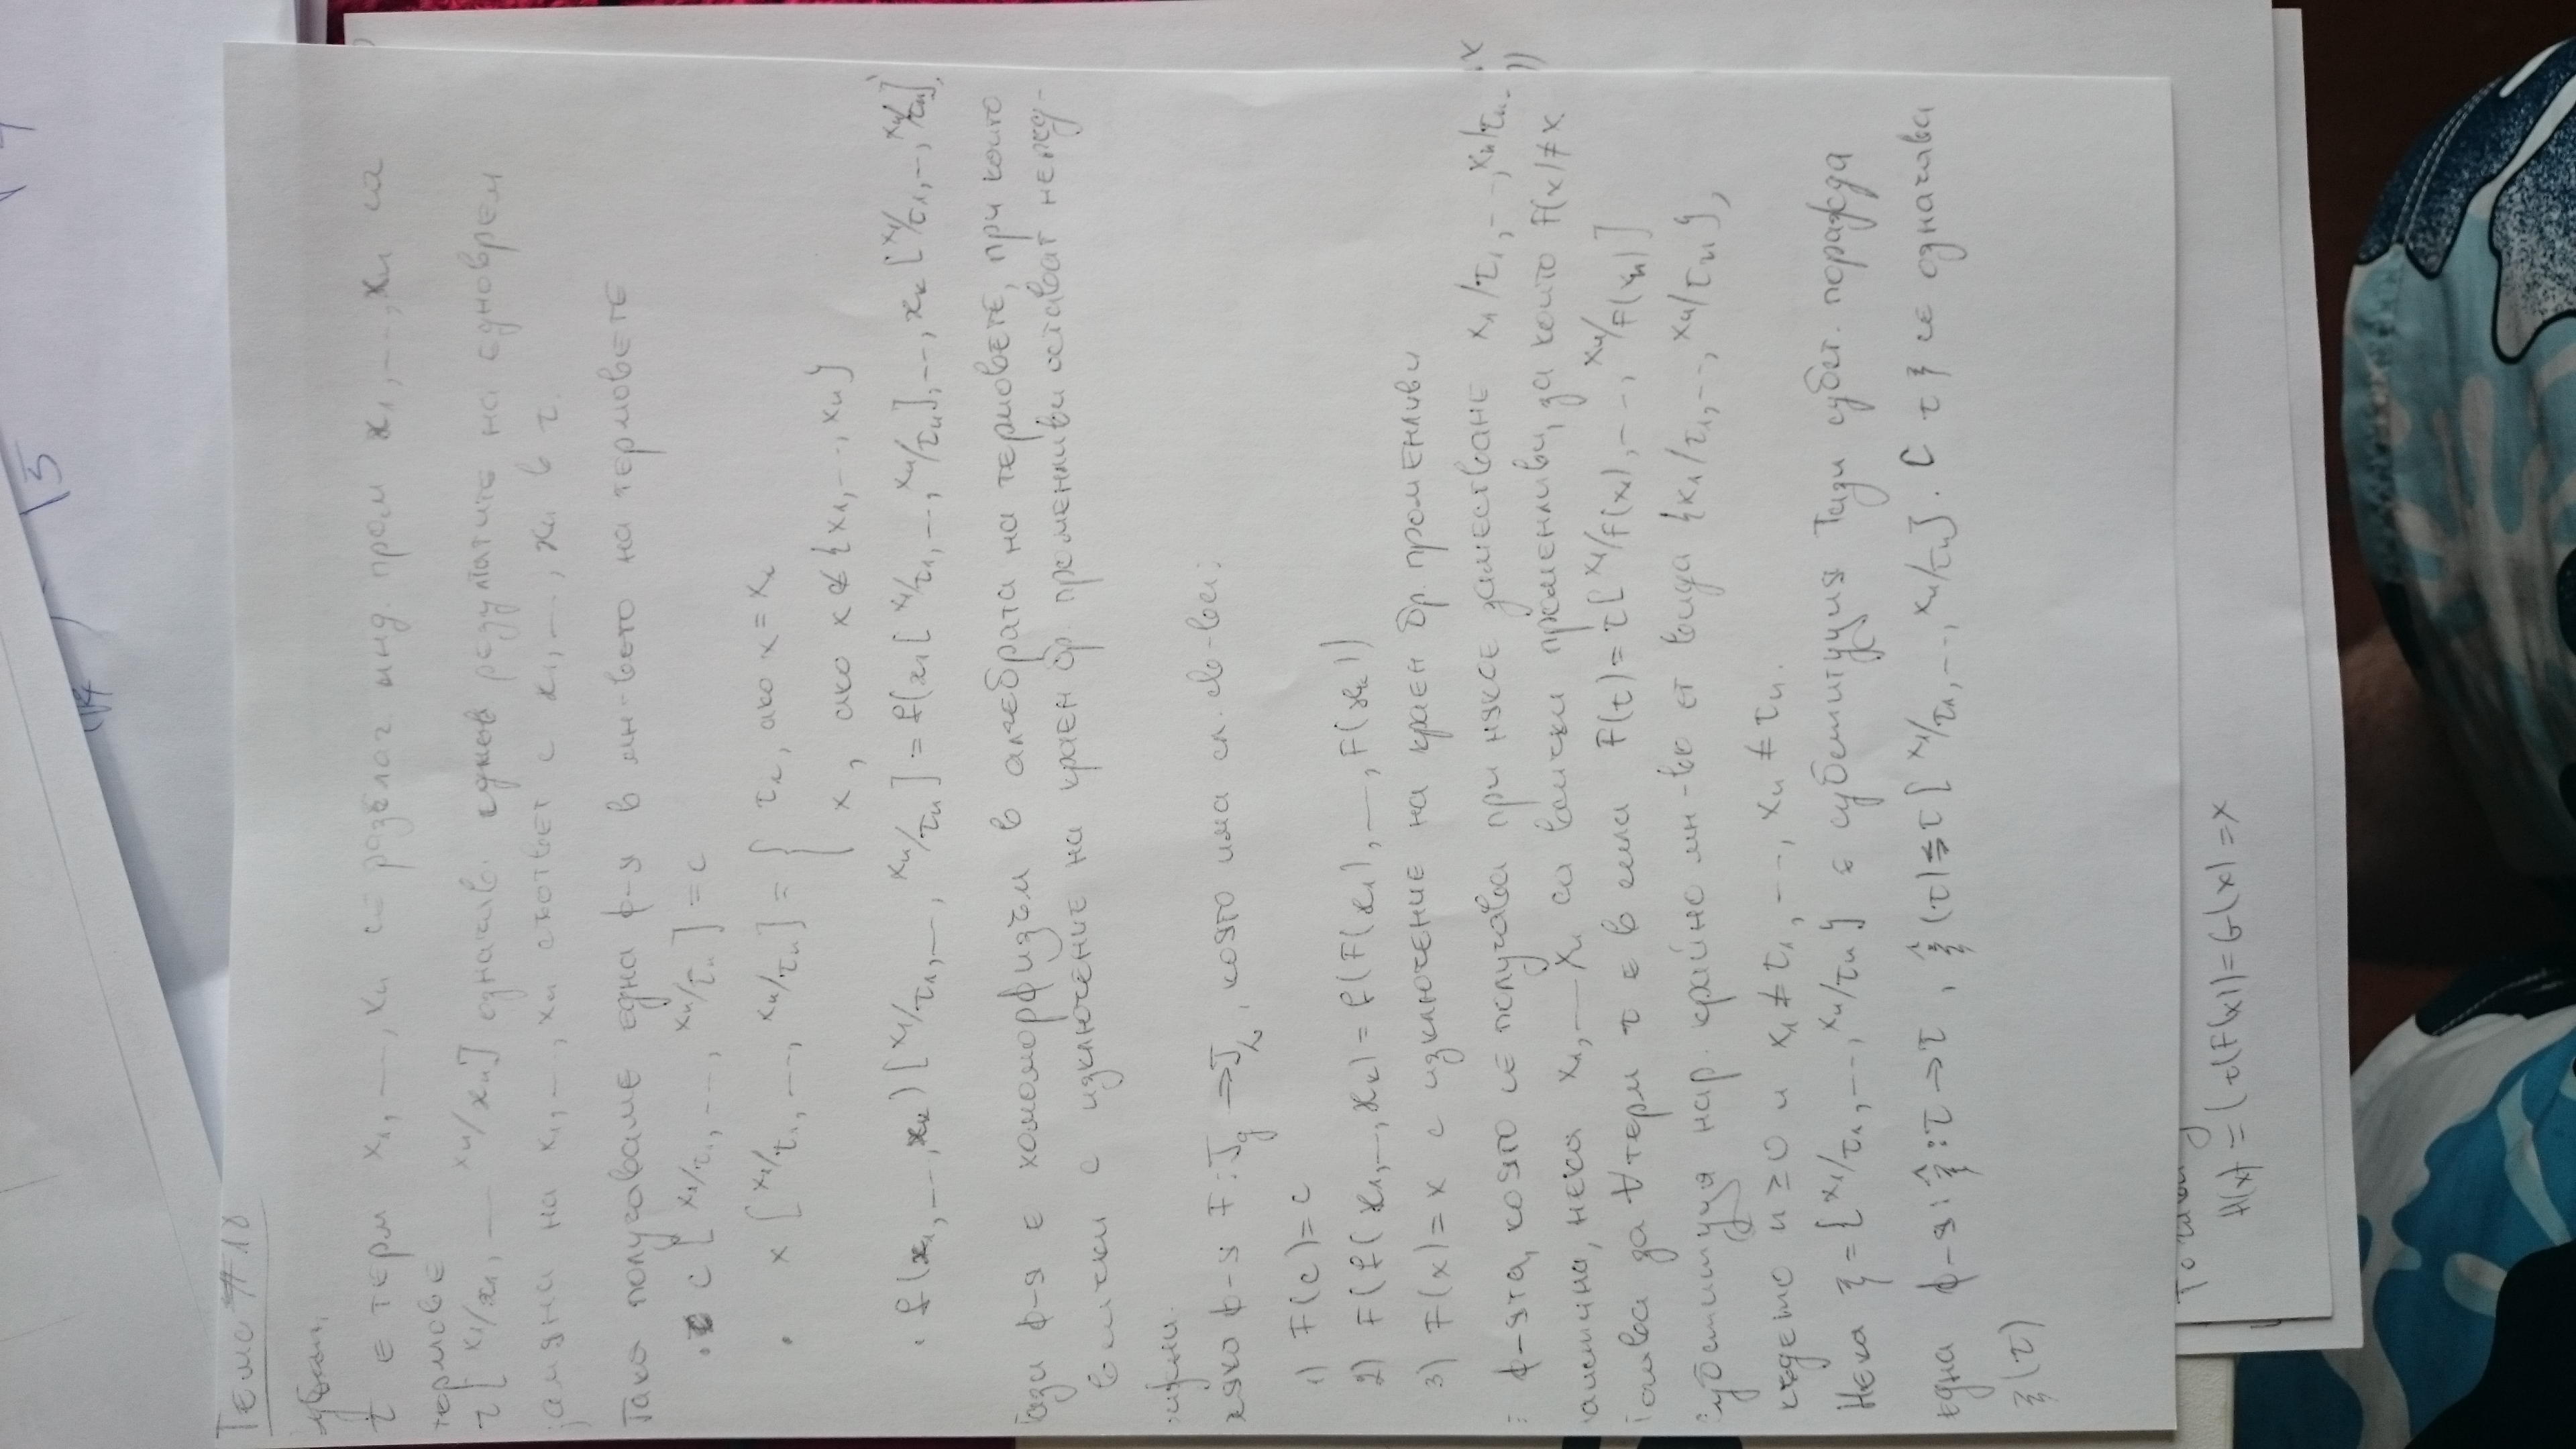 Тема #18
τ е терм x1, –, xn се разглог инд. пром x1, –··, xn са
термове
τ[x1/x1, –– xn/xn] означав. резултатите на едноврем
замяна на x1, –··, xn съответ с x1, –··, xn в τ.
Така получаваме една ф-я в мн-вото на термовете
· c[x1/τ1, –··, xn/τn] = c
· x[x1/τ1, –··, xn/τn] = { τi, ако x = xi
x, ако x ∉ {x1, –··, xn}
· f(x1, –··, xk)[x1/τ1, –··, xn/τn] = f(x1[x1/τ1, –··, xn/τn], –··, xk[x1/τ1, –··, xn/τn].
Тази ф-я е хомоморфизъм в алгебрата на термовете, при която
всички с изключение на краен бр. променливи остават непод-
ф-я F: J → J, която има сл. св-ва:
1) F(c) = c
2) F(f(x1, –··, xk) = f(F(x1), –··, F(xk))
3) F(x) = x с изключение на краен бр. променливи
ф-ята, която се получава при някое заместване x1/τ1, –··, xn/τn.
нека x1, –– xn са всички променливи, за които F(x) ≠ x
за ∀ терм τ е в сила F(τ) = τ[x1/F(x), –··, xn/F(xn)]
субституция нар. крайно мн-во от вида {x1/τ1, –··, xn/τn},
където n ≥ 0 и x1 ≠ τ1, –··, xn ≠ τn.
Нека ξ = {x1/τ1, –··, xn/τn} е субституция Тази субст. поражда
една ф-я: ξ̂: τ → τ, ξ̂(τ) ⇆ τ[x1/τ1, –··, xn/τn]. С τξ се означава
ξ(τ)
H(x) = (τ(F(x)) = G(x) = x